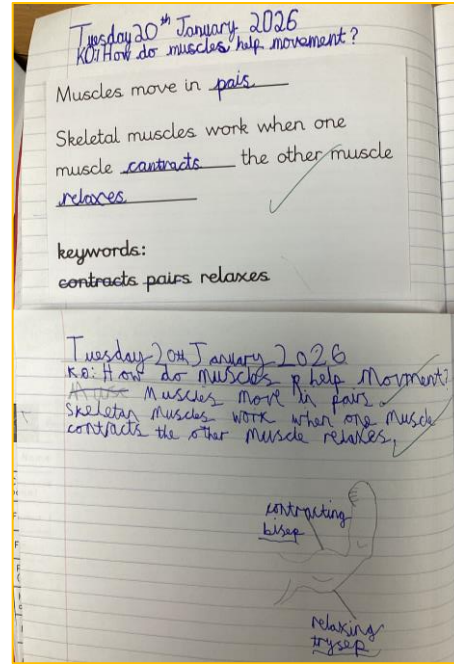 Tuesday 20th January 2026
KO: How do muscles help movement?
Muscles move in pais
Skeletal muscles work when one
muscle cantracts the other muscle
relaxes
keywords:
contracts pairs relaxes
Tuesday 20th January 2026
KO: How do muscles p help Movment?
Muscles move in pairs.
Skeletan Muscles work when one Muscle
contracts the other Muscle relaxes,
contracting
bisep
relaxing
trysep